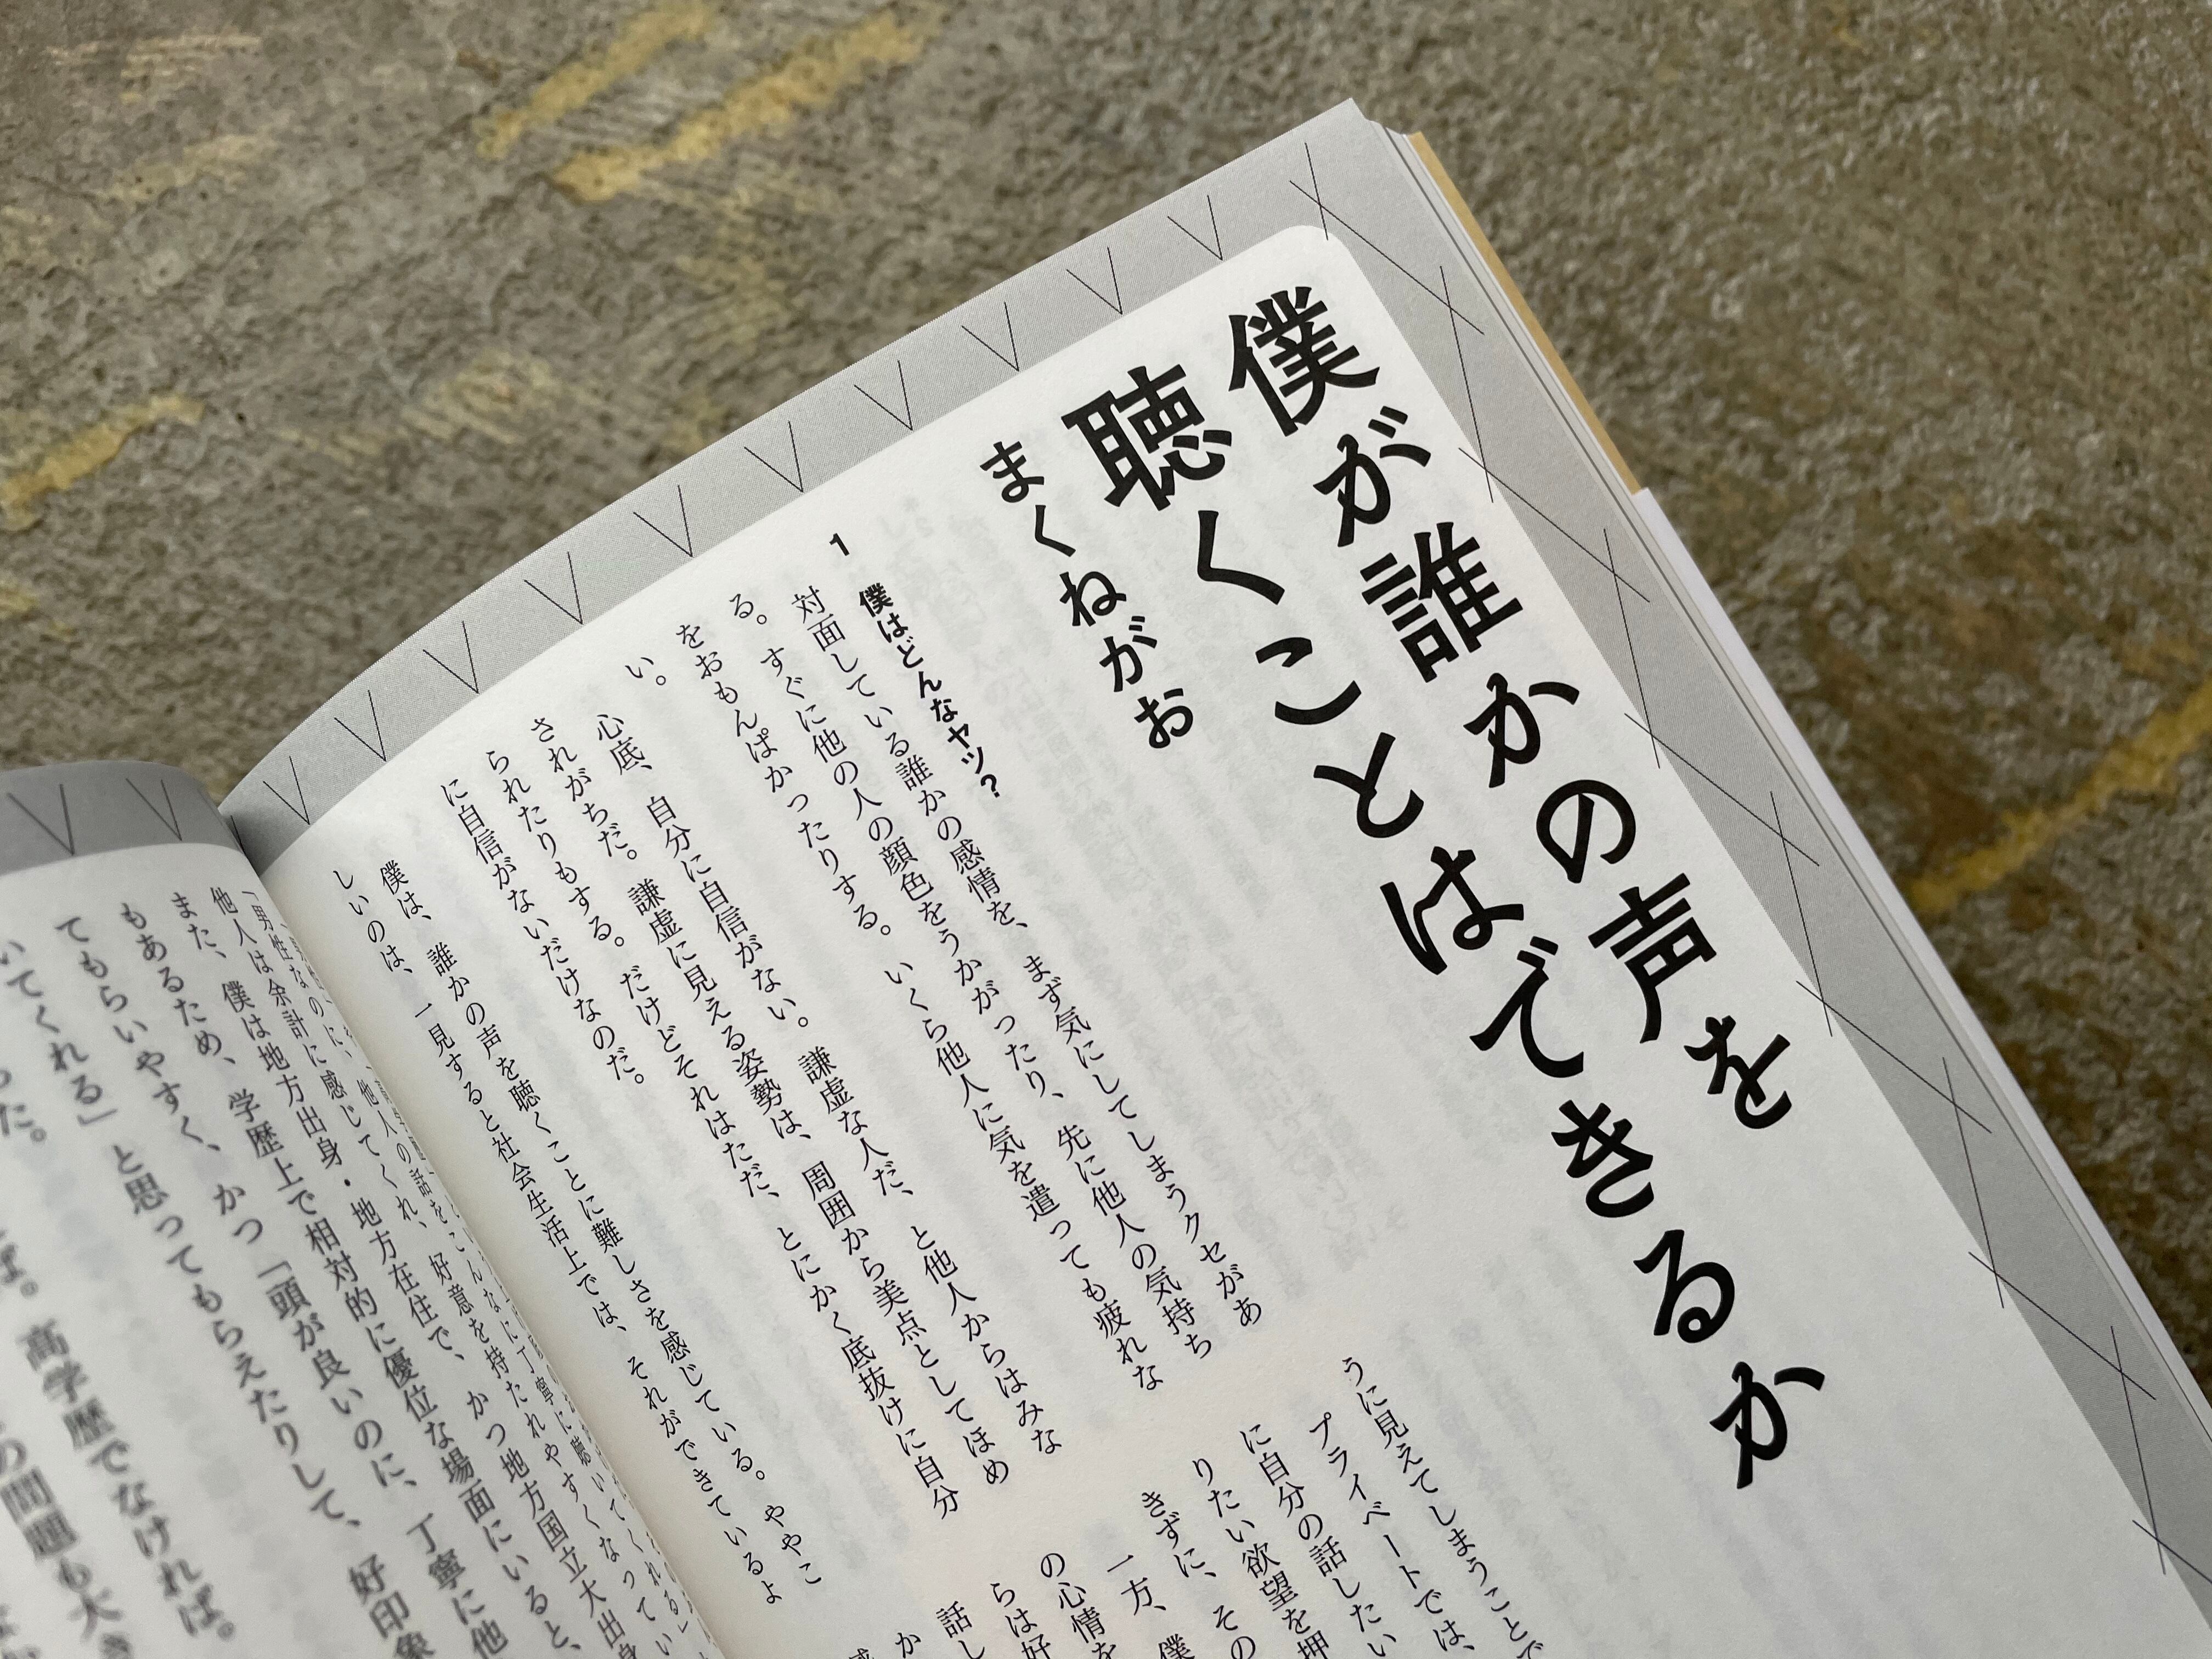 僕が誰かの声を
聴くことはできるか
まくねがお
1 僕はどんなヤツ?
対面している誰かの感情を、まず気にしてしまうクセがあ
る。すぐに他の人の顔色をうかがったり、先に他人の気持ち
をおもんぱかったりする。いくら他人に気を遣っても疲れな
い。
心底、自分に自信がない。謙虚な人だ、と他人からはみな
されがちだ。謙虚に見える姿勢は、周囲から美点としてほめ
られたりもする。だけどそれはただ、とにかく底抜けに自分
に自信がないだけなのだ。
僕は、誰かの声を聴くことに難しさを感じている。ややこ
しいのは、一見すると社会生活上では、それができているよ
うに見えてしまうことで
プライベートでは、
に自分の話したい
りたい欲望を押
きずに、その
一方、僕
の心情を
らは好
話し
か
「男性なのに、他人の話をこんなに丁寧に聴いてくれる」
他人は余計に感じてくれ、好意を持たれやすくなってい
また、僕は地方出身・地方在住で、かつ地方国立大出身
もあるため、学歴上で相対的に優位な場面にいると、
てもらいやすく、かつ「頭が良いのに、丁寧に他
いてくれる」と思ってもらえたりして、好印象
った。
ば。高学歴でなければ。
の問題も大き